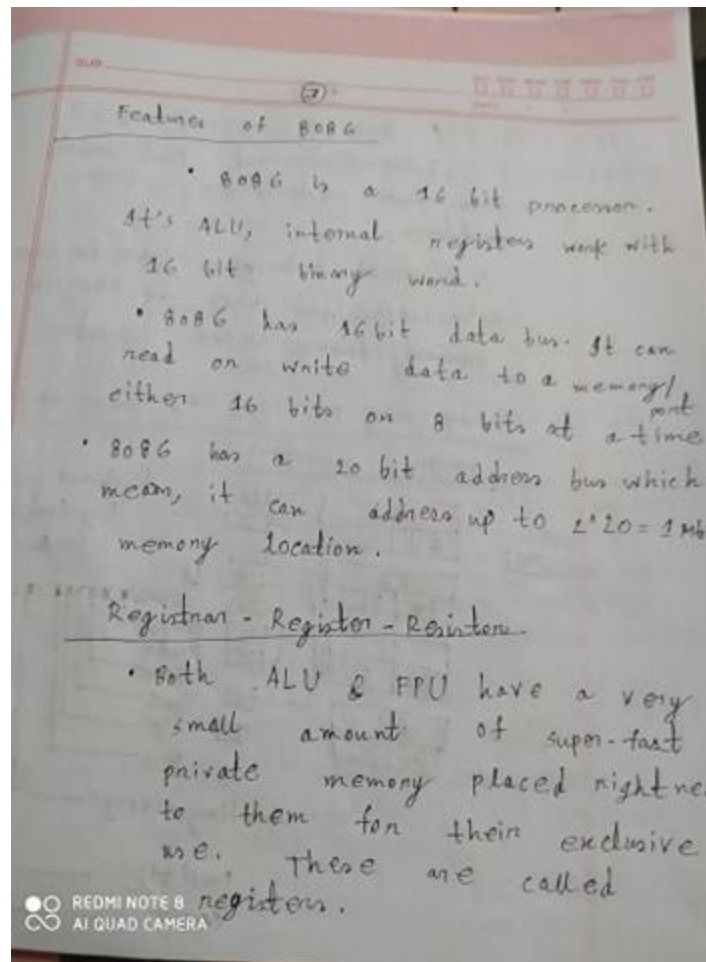 SUB
7
Features of 8086
• 8086 is a 16 bit processor.
It's ALU, internal registers work with
16 bit binary word.
• 8086 has 16 bit data bus. It can
read or write data to a memory/
port
either 16 bits or 8 bits at a time
• 8086 has a 20 bit address bus which
means, it can address up to 2^20 = 1 Mb
memory location.
Registrar - Register - Resistor
• Both ALU & FPU have a very
small amount of super-fast
private memory placed right ne
to them for their exclusive
use. These are called
registers.
REDMI NOTE 8
AI QUAD CAMERA